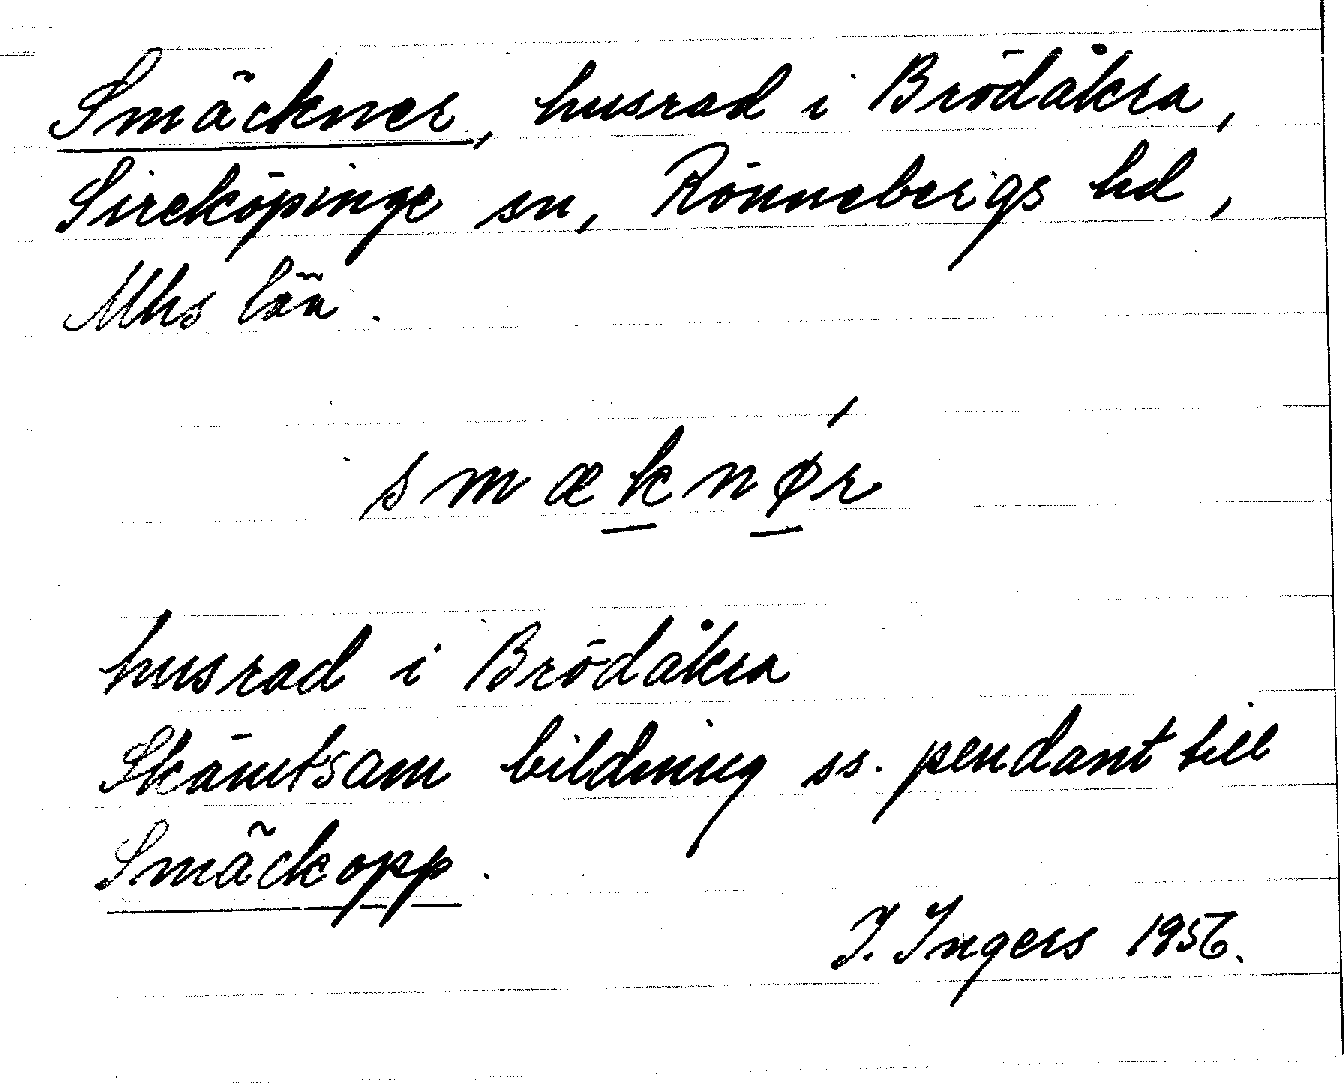 Smäckner, husrad i Brödåkra,
Sireköpinge sn, Rönnebergs hd,
Mhs län.
smæknǿr
husrad i Brödåkra
Skämtsam bildning ss. pendant till
Smäckopp.
I. Ingers 1956.